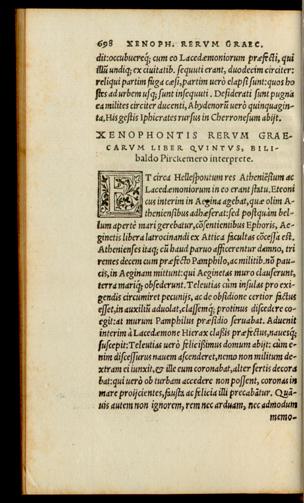 698 XENOPH. RERVM GRAEC.
dit: occubuereq́; cum eo Lacedæmoniorum præfecti, qui
illũ undiq; ex ciuitatib. sequuti erant, duodecim circiter:
reliqui partim fuga cæsi, partim uerò elapsi sunt: quos ho
stes ad urbem usq; sunt insequuti. Desiderati sunt pugna
ea milites circiter ducenti, Abydenorũ uerò quinquagin-
ta. His gestis Iphicrates rursus in Cherronesum abijt.
XENOPHONTIS RERVM GRAE-
CARVM LIBER QVINTVS, BILI-
baldo Pirckemero interprete.
ET circa Hellespontum res Atheniẽsium ac
Lacedæmoniorum in eo erant statu. Eteoni
cus interim in Aegina agebat, quæ olim A-
theniensibus adhæserat: sed postquàm bel-
lum apertè mari gerebatur, cõsentientibus Ephoris, Ae-
ginetis libera latrocinandi ex Attica facultas cõcessa est.
Athenienses itaq; cũ haud paruo afficerentur damno, tri
remes decem cum præfecto Pamphilo, ac militib. nõ pau-
cis, in Aeginam mittunt: qui Aeginetas muro clauserunt,
terra mariq́; obsederunt. Teleutias cùm insulas pro exi-
gendis circumiret pecunijs, ac de obsidione certior factus
esset, in auxiliũ aduolat, classemq́; protinus discedere co-
egit: at murum Pamphilus præsidio seruabat. Aduenit
interim à Lacedæmone Hierax classis præfectus, nauesq́;
suscepit: Teleutias uerò felicißimus domum abijt: cùm e-
nim discessurus nauem ascenderet, nemo non militum de-
xtram ei iunxit, & ille eum coronabat, alter sertis decora
bat: qui uerò ob turbam accedere non possent, coronas in
mare proijcientes, fausta ac felicia illi precabãtur. Quã-
uis autem non ignorem, rem nec arduam, nec admodum
memo-